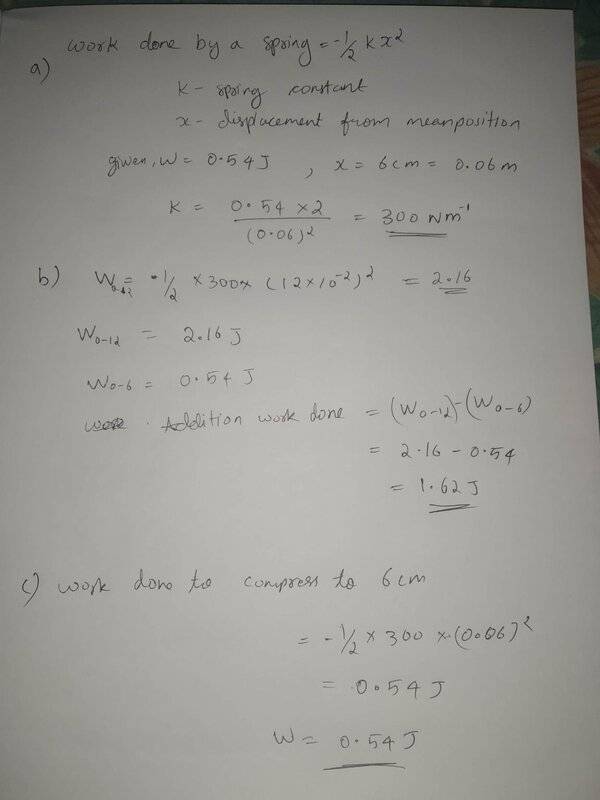 work done by a spring = -1/2 kx²
a)
K - spring constant
x - displacement from meanposition
given, W = 0.54 J , x = 6cm = 0.06m
K = 0.54 × 2 / (0.06)² = 300 Nm⁻¹
b) W₀₋₁₂ = -1/2 × 300 × (12×10⁻²)² = 2.16
W₀₋₁₂ = 2.16 J
W₀₋₆ = 0.54 J
Addition work done = (W₀₋₁₂) - (W₀₋₆)
= 2.16 - 0.54
= 1.62 J
c) work done to compress to 6cm
= -1/2 × 300 × (0.06)²
= 0.54 J
W = 0.54 J